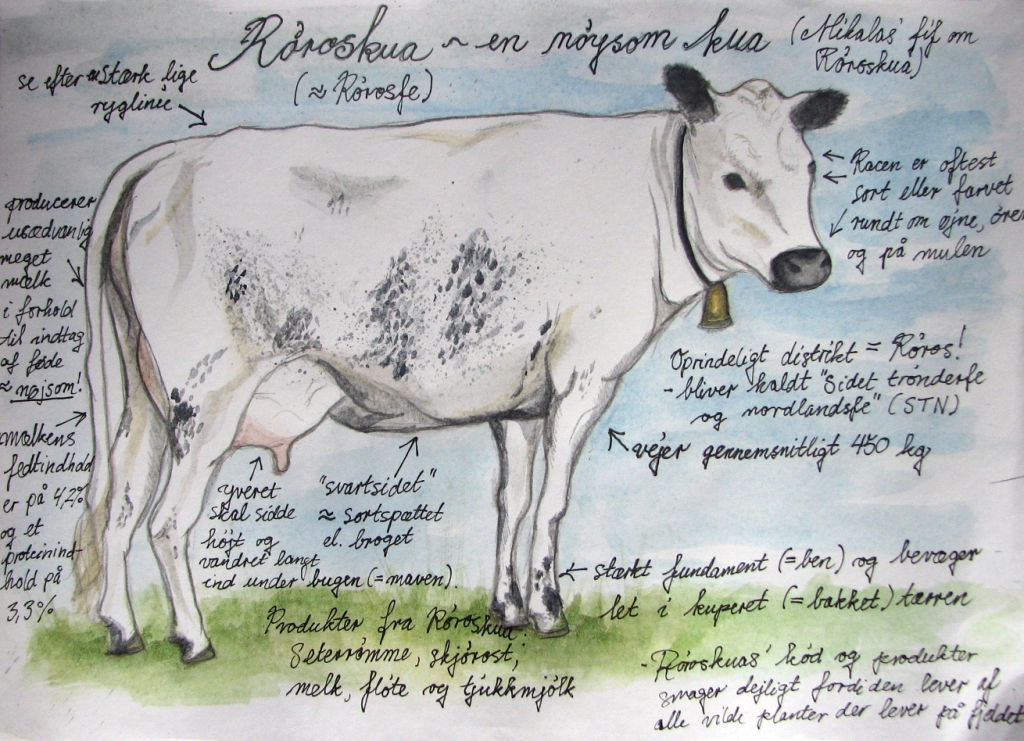 Röroskua ~ en nöysom kua
(Mikalas' fif om
Röroskua)
(≈ Rörosfe)
se efter stærk lige
ryglinie
Racen er oftest
sort eller farvet
rundt om øjne, ører
og på mulen
producerer
usædvanlig
meget
mælk
i forhold
til indtag
af føde
≈ nøjsom!
Oprindeligt distrikt = Röros!
- bliver kaldt "Sidet trönderfe
og nordlandsfe" (STN)
vejer gennemsnitligt 450 kg
mælkens
fedtindhold
er på 4,2%
og et
proteinind
hold på
3,3%
yveret
skal sidde
højt og
vandret langt
ind under bugen (= maven).
"svartsidet"
≈ sortspættet
el. broget
stærkt fundament (= ben) og bevæger
let i kuperet (= bakket) tærren
Produkter fra Röroskua:
Seterrömme, skjörost,
melk, flöte og tjukkmjölk
- Röroskuas' kød og produkter
smager dejligt fordi den lever af
alle vilde planter der lever på fjeldet